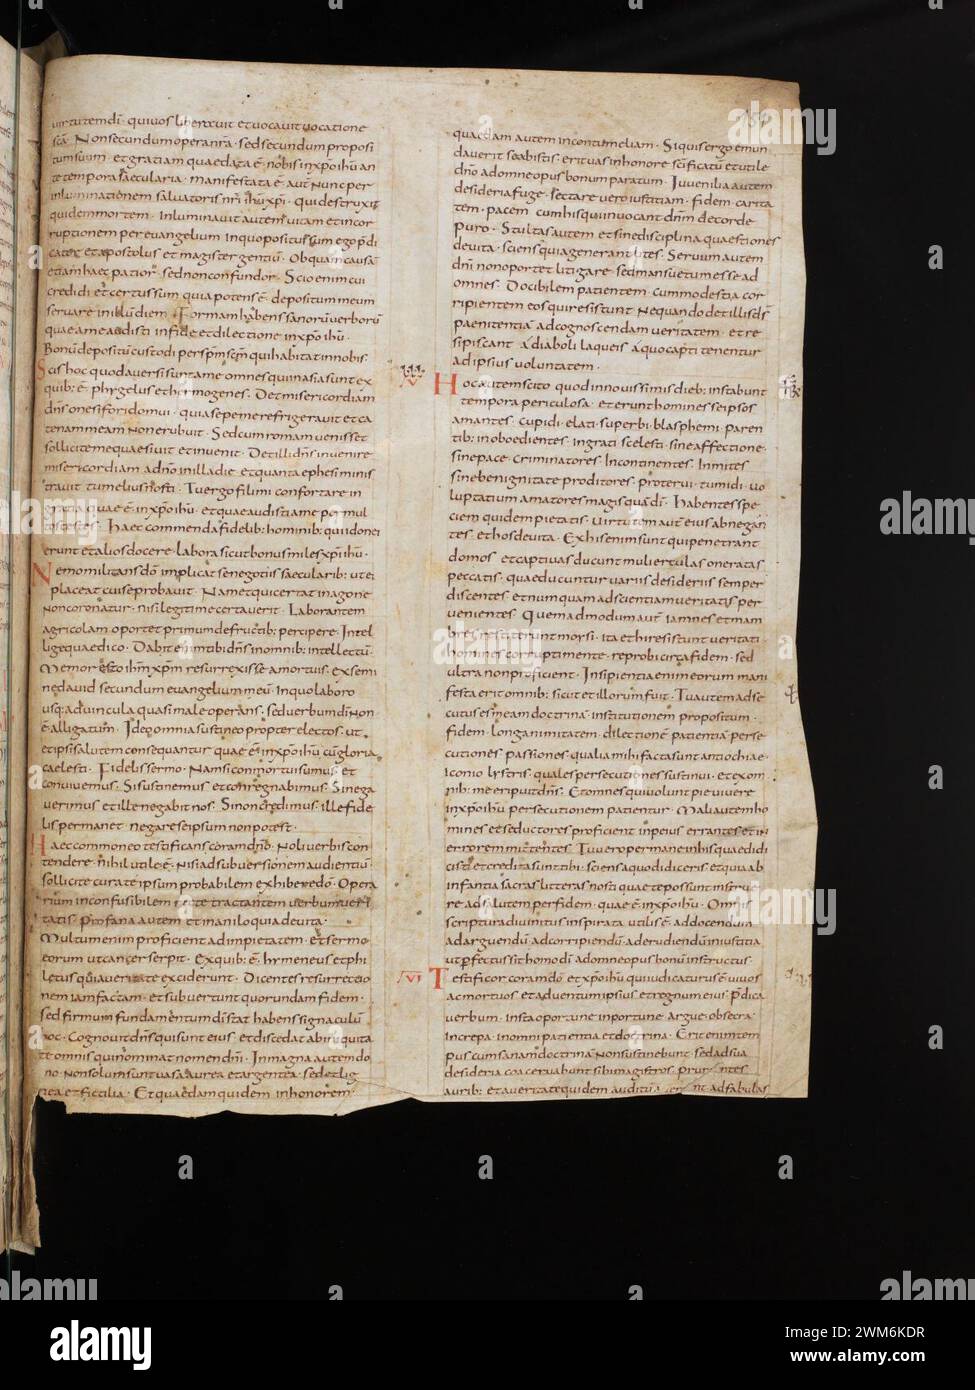 184
virtutem dī · qui vos liberavit et vocavit vocatione
scā · Non secundum opera nrā · sed secundum proposi
tum suum · et gratiam quae data ē nobis in xpō ihū an
te tempora saecularia · manifestata ē aut nunc per
inluminationem salvatoris nrī ihū xpī · qui destruxit
quidem mortem · Inluminavit autem vitam et incor
ruptionem per evangelium In quo positus sum ego p̄di
cator et apostolus et magister gentiū · Ob quam causā
etiam haec patior · sed non confundor · Scio enim cui
credidi et certus sum quia potens ē · depositum meum
servare in illū diem · Formam habens sanorū verborū
quae a me audisti in fide et dilectione in xpō ihū ·
Bonū depositū custodi per spm scm qui habitat in nobis ·
Scis hoc quod aversi sunt a me omnes qui in asia sunt ex
quib: ē phygelus et hermogenes · Det misericordiam
dn̄s onesifori domui · quia sepe me refrigeravit et ca
tenam meam non erubuit · Sed cum romam venisset
sollicite me quaesivit et invenit · Det illi dn̄s invenire
misericordiam a dn̄o in illa die et quanta ephesi minis
travit tu melius nosti · Tu ergo fili mi confortare in
gratia quae ē in xpō ihū · et quae audisti a me per mul
tos testes · Haec commenda fidelib: hominib: qui idonei
erunt et alios docere · labora sicut bonus miles xpī ihū ·
Nemo militans dō implicat se negotiis saecularib: ut ei
placeat cui se probavit · Nam et qui certat in agone
non coronatur · nisi legitime certaverit · Laborantem
agricolam oportet primum de fructib: percipere · Intel
lige quae dico · Dabit enim tibi dn̄s in omnib: intellectū
Memor esto ihm xpm resurrexisse a mortuis · ex semi
ne david secundum evangelium meū · In quo laboro
usq: ad vincula quasi male operans · sed verbum dī non
ē alligatum · Ideo omnia sustineo propter electos · ut
et ipsi salutem consequantur quae ē in xpō ihū cū gloria
caelesti · Fidelis sermo · Nam si conmortui sumus et
convivemus · Si sustinemus et conregnabimus · Si nega
verimus et ille negabit nos · Si non credimus · ille fide
lis permanet negare se ipsum non potest ·
Haec commoneo testificans coram dnō · Noli verbis con
tendere · nihil utile ē · nisi ad subversionem audientiū
sollicite cura te ipsum probabilem exhibere dō · Opera
rium inconfusibilem recte tractantem verbum veri
tatis · Profana autem et maniloquia devita ·
Multum enim proficient ad impietatem · et sermo
eorum ut cancer serpit · Ex quib: ē hymeneus et phi
letus qui a veritate exciderunt · Dicentes resurrectio
nem iam factam · et subvertunt quorundam fidem ·
sed firmum fundamentum dī stat habens signaculū
hoc · Cognovit dn̄s qui sunt eius et discedat ab iniquita
te omnis qui nominat nomen dnī · In magna autem do
mo · non solum sunt vasa aurea et argentea · sed et lig
nea et fictilia · Et quaedam quidem in honorem
quaedam autem in contumeliam · Si quis ergo emun
daverit se ab istis · erit vas in honore scīficatū et utile
dn̄o ad omne opus bonum paratum · Iuvenilia autem
desideria fuge · sectare vero iustitiam · fidem · carita
tem · pacem cum his qui invocant dnm de corde
puro · Stultas autem et sine disciplina quaestiones
devita · sciens quia generant lites · Servum autem
dnī non oportet litigare · sed mansuetum esse ad
omnes · Docibilem patientem · cum modestia cor
ripientem eos qui resistunt · Ne quando det illis ds
paenitentiā ad cognoscendam veritatem · et re
sipiscant a diaboli laqueis a quo capti tenentur
ad ipsius voluntatem ·
V Hoc autem scito quod in novissimis dieb: instabunt
tempora periculosa · et erunt homines se ipsos
amantes · cupidi · elati · superbi · blasphemi · paren
tib: inoboedientes · ingrati scelesti · sine affectione ·
sine pace · criminatores · Incontinentes · Inmites
sine benignitate proditores · protervi · tumidi · vo
luptatium amatores magis quā dī · Habentes spe
ciem quidem pietatis · virtutem aut eius abnegan
tes · et hos devita · Ex his enim sunt qui penetrant
domos et captivas ducunt mulierculas oneratas
peccatis · quae ducuntur variis desideriis semper
discentes · et numquam ad scientiam veritatis per
venientes · Quemadmodum aut iamnes et mam
bres restiterunt moysi · ita et hi resistunt veritati ·
homines corrupti mente · reprobi circa fidem · sed
ultra non proficient · Insipientia enim eorum mani
festa erit omnib: sicut et illorum fuit · Tu autem adse
cutus es meam doctrinā · institutionem propositum ·
fidem · longanimitatem · dilectionē patientiā · perse
cutiones passiones · qualia mihi facta sunt antiochiae ·
Iconio lystris · quales persecutiones sustinui · et ex om
nib: me eripuit dns · Et omnes qui volunt pie vivere
in xpō ihū persecutionem patientur · Mali autem ho
mines et seductores proficient in peius errantes et in
errorem mittentes · Tu vero permane in his quae didi
cisti et credita sunt tibi · sciens a quo didiceris et quia ab
infantia sacras litteras nosti quae te possunt instrue
re ad salutem per fidem · quae ē in xpō ihū · Omnis
scriptura divinitus inspirata utilis ē · ad docendum
ad arguendū ad corripiendū ad erudiendū in iustitia
ut perfectus sit homo dī ad omne opus bonū instructus
VI Testificor coram dō et xpō ihū qui iudicaturus ē vivos
ac mortuos et adventum ipsius et regnum eius · p̄dica
verbum · insta oportune inportune · argue · obsecra ·
increpa · in omni patientia et doctrina · Erit enim tem
pus cum sanam doctrinā non sustinebunt · sed ad sua
desideria coacervabunt sibi magistros · prurientes
aurib: et a veritate quidem auditū avertent ad fabulas
alamy
Image ID: 2WM6KDR
www.alamy.com